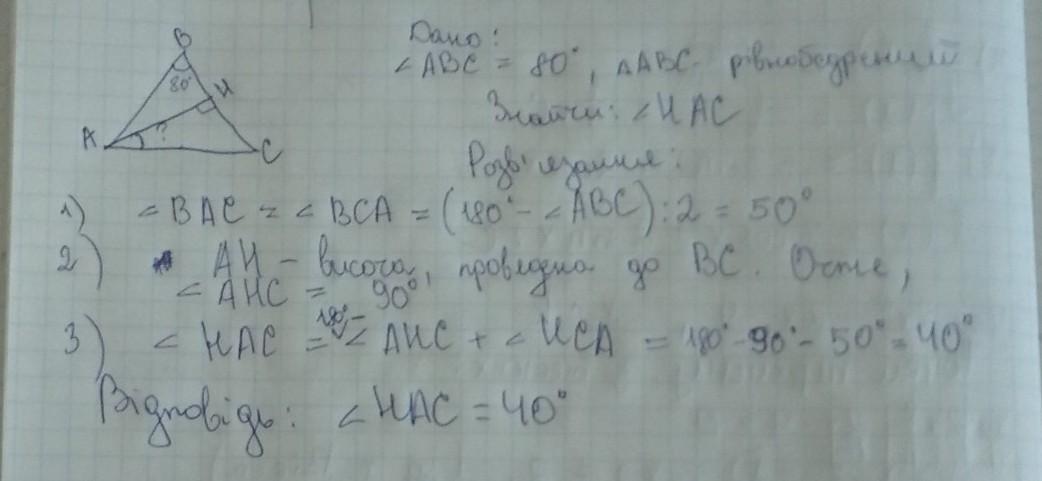 Дано:
∠ABC = 80°, △ABC- рівнобедрений
Знайти: ∠HAC
Розв'язання:
B
80°
H
A
?
C
1) ∠BAC = ∠BCA = (180° - ∠ABC):2 = 50°
2) AH - висота, проведена до BC. Отже,
∠AHC = 90°
3) ∠HAC = 180° - ∠AHC + ∠HCA = 180° - 90° - 50° = 40°
Відповідь: ∠HAC = 40°